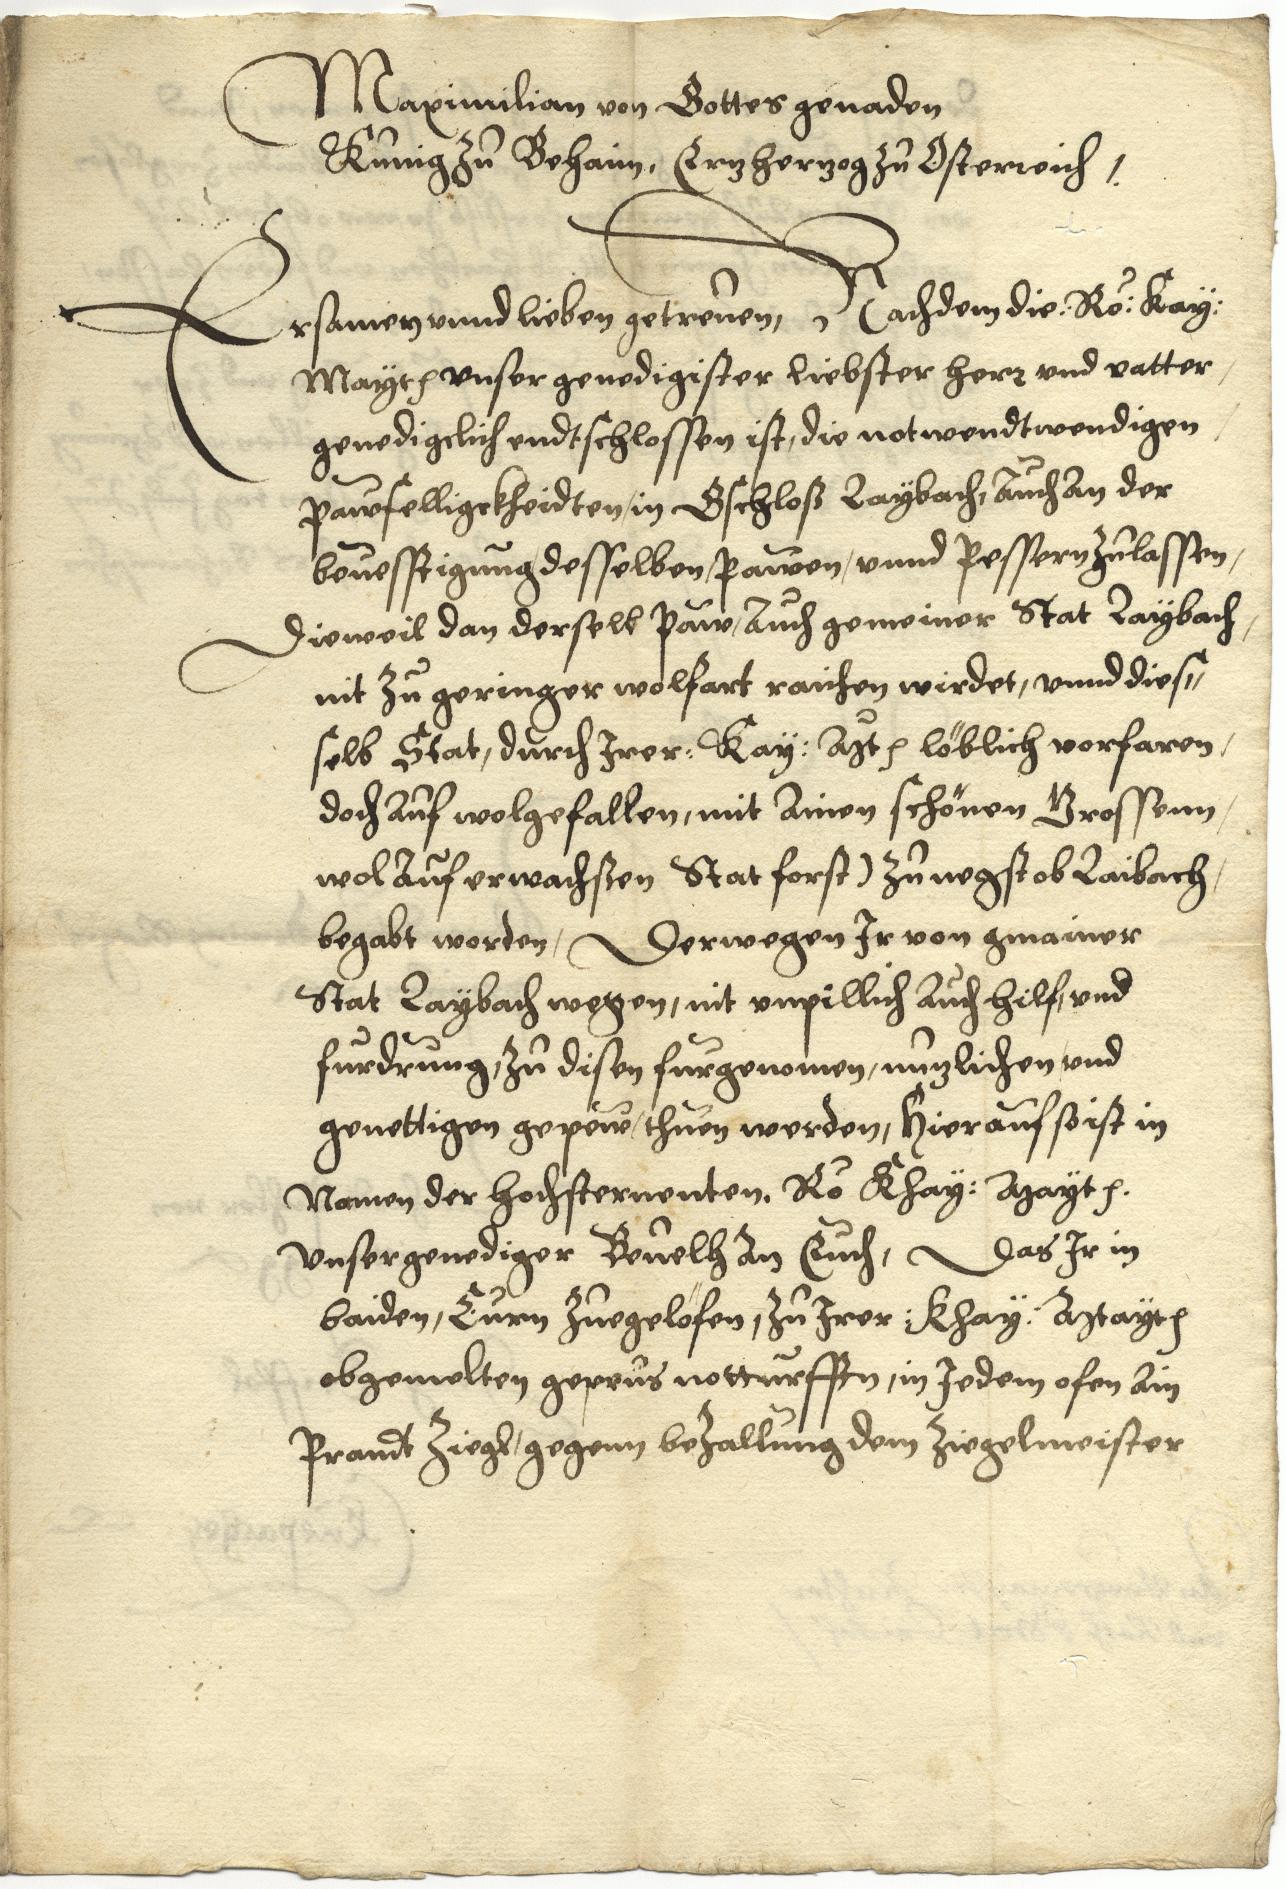 Maximilian von Gottes genaden
Künig zů Behaim, Ertzhertzog zů Österreich /.
Ersamen vnnd lieben getreüen, Nachdem die: Rö: Kay:
Mayt: vnser genedigister liebster herr vnd vatter /
genedigclich endtschlossen ist, die notwendtwendigen /
pawfelligckheidten / in Gschloß Laybach, Auch An der
beuesstigung desselben / pawen / vnnd pessern zůlassen /
Dieweil dan derselb paw / Auch gemeiner Stat Laybach /
nit zů geringer wolfart raichen wirdet, vnnd dies=
selb Stat, durch Irer: Kay: Mt: löblich vorfaren /
doch Auf wolgefallen, mit Ainen schönen Grossenn /
wol Auf erwachsßen Stat forst) zů negst ob Laibach /
begabt worden / Derwegen Ir von gmainer
Stat Laybach wegen, nit vnpillich Auch hilf, vnd
furdrung, zů disen furgenomen, nützlichen / vnd
genettigen gepew / thuen werden, Hierauf so ist in
Namen der hochsternenten. Rö Khay: Mayt:.
vnser genediger Beuelh An Euch, Das Ir in
baiden, Eurn zuegelöfen, zů Irer: Khay: Mayt:
obgemelten gepeüs notturfften, in Jedem ofen Ain
Prandt Ziegl / gegenn beZallung dem Ziegelmeister